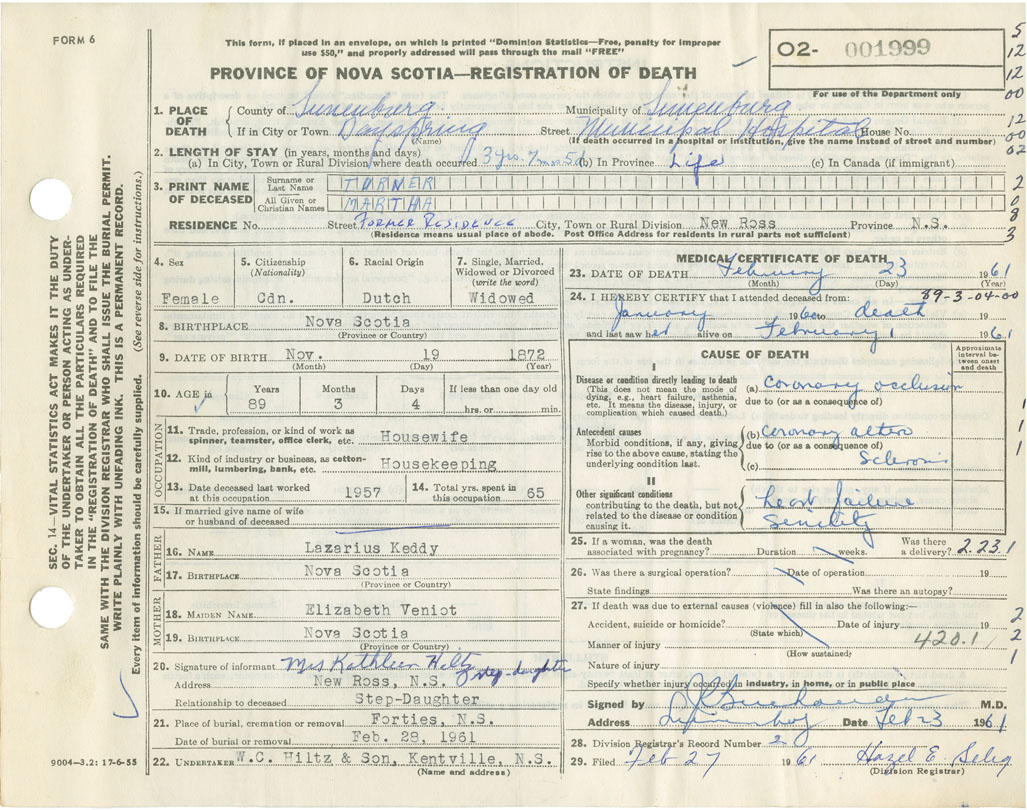 FORM 6
This form, if placed in an envelope, on which is printed "Dominion Statistics—Free, penalty for improper
use $50," and properly addressed will pass through the mail "FREE"
PROVINCE OF NOVA SCOTIA—REGISTRATION OF DEATH
O2- 001999
For use of the Department only
5
12
12
00
12
00
02
2
0
8
3
1. PLACE OF DEATH
County of Lunenburg Municipality of Lunenburg
If in City or Town Dayspring Street Municipal Hospital House No.
(Name) (If death occurred in a hospital or institution, give the name instead of street and number)
2. LENGTH OF STAY (in years, months and days)
(a) In City, Town or Rural Division where death occurred 3 yrs. 7 mos (b) In Province Life (c) In Canada (if immigrant)
3. PRINT NAME OF DECEASED
Surname or Last Name TURNER
All Given or Christian Names MARTHA
RESIDENCE No. Street Former Residence City, Town or Rural Division New Ross Province N.S.
(Residence means usual place of abode. Post Office Address for residents in rural parts not sufficient)
4. Sex Female
5. Citizenship (Nationality) Cdn.
6. Racial Origin Dutch
7. Single, Married, Widowed or Divorced (write the word) Widowed
8. BIRTHPLACE Nova Scotia
(Province or Country)
9. DATE OF BIRTH Nov. 19 1872
(Month) (Day) (Year)
10. AGE in Years 89 Months 3 Days 4 If less than one day old hrs. or min.
OCCUPATION
11. Trade, profession, or kind of work as spinner, teamster, office clerk, etc. Housewife
12. Kind of industry or business, as cotton-mill, lumbering, bank, etc. Housekeeping
13. Date deceased last worked at this occupation 1957
14. Total yrs. spent in this occupation 65
15. If married give name of wife or husband of deceased
FATHER
16. NAME Lazarius Keddy
17. BIRTHPLACE Nova Scotia
(Province or Country)
MOTHER
18. MAIDEN NAME Elizabeth Veniot
19. BIRTHPLACE Nova Scotia
(Province or Country)
20. Signature of informant Mrs Kathleen Hiltz step-daughter
Address New Ross, N.S.
Relationship to deceased Step-Daughter
21. Place of burial, cremation or removal Forties, N.S.
Date of burial or removal Feb. 28, 1961
22. UNDERTAKER W.C. Hiltz & Son, Kentville, N.S.
(Name and address)
MEDICAL CERTIFICATE OF DEATH
23. DATE OF DEATH February 23 1961
(Month) (Day) (Year)
24. I HEREBY CERTIFY that I attended deceased from: 89-3-04-00
January 1960 to death 19
and last saw her alive on February 1 1961
CAUSE OF DEATH
Approximate interval between onset and death
I
Disease or condition directly leading to death
(This does not mean the mode of dying, e.g., heart failure, asthenia, etc. It means the disease, injury, or complication which caused death.)
(a) coronary occlusion
due to (or as a consequence of)
Antecedent causes
Morbid conditions, if any, giving rise to the above cause, stating the underlying condition last.
(b) coronary
due to (or as a consequence of)
(c) Sclerosis
1
1
1
II
Other significant conditions
contributing to the death, but not related to the disease or condition causing it.
heart failure
senility
25. If a woman, was the death associated with pregnancy? Duration weeks. Was there a delivery? 2.23.1
26. Was there a surgical operation? Date of operation 19
State findings Was there an autopsy?
27. If death was due to external causes (violence) fill in also the following:—
Accident, suicide or homicide? Date of injury 19
(State which)
Manner of injury 420.1
(How sustained)
Nature of injury
2
2
1
Specify whether injury occurred in industry, in home, or in public place
Signed by M.D.
Address Date Feb 23 1961
28. Division Registrar's Record Number 2
29. Filed Feb 27 1961 Hazel E. Selig
(Division Registrar)
SEC. 14—VITAL STATISTICS ACT MAKES IT THE DUTY
OF THE UNDERTAKER OR PERSON ACTING AS UNDER-
TAKER TO OBTAIN ALL THE PARTICULARS REQUIRED
IN THE "REGISTRATION OF DEATH" AND TO FILE THE
SAME WITH THE DIVISION REGISTRAR WHO SHALL ISSUE THE BURIAL PERMIT.
WRITE PLAINLY WITH UNFADING INK. THIS IS A PERMANENT RECORD.
Every item of information should be carefully supplied. (See reverse side for instructions.)
9004—3.2: 17-6-55